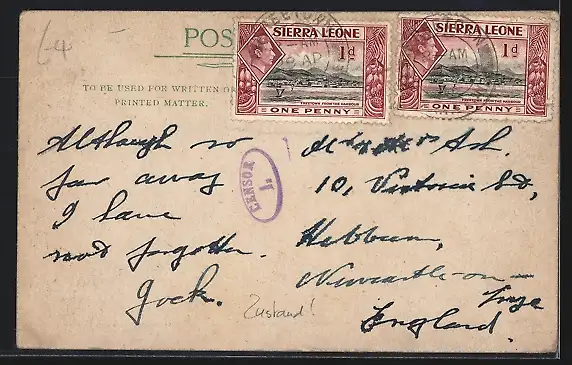 POS
TO BE USED FOR WRITTEN OR
PRINTED MATTER.
SIERRA LEONE
1d
FREETOWN FROM THE HARBOUR
ONE PENNY
SIERRA LEONE
1d
FREETOWN FROM THE HARBOUR
ONE PENNY
FREETOWN
AM
AP
AM
CENSOR
1.
Although so
far away
I have
not forgotten.
Jock.
Ash.
10, Victoria Rd,
Hebburn,
Newcastle-on-
Tyne
England.
Zustand!